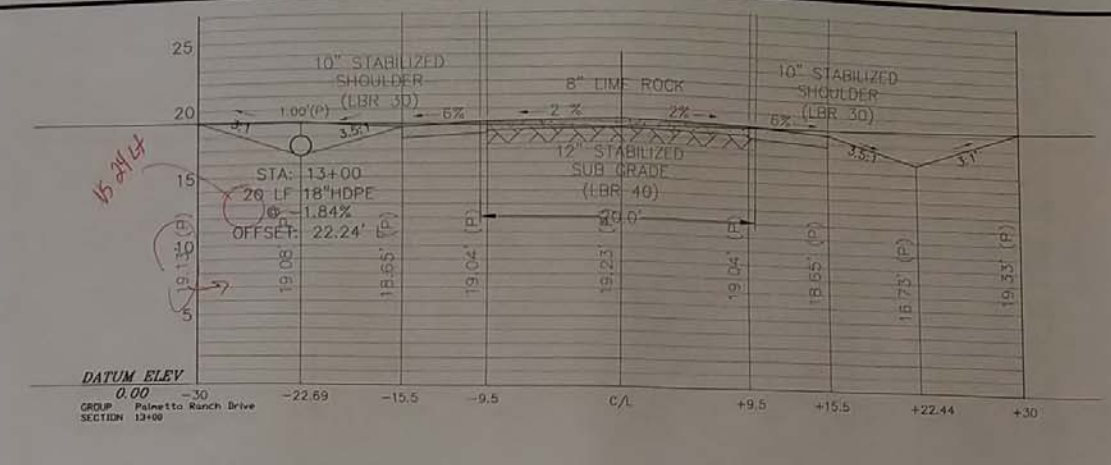 25
20
15
10
5
10" STABILIZED
SHOULDER
(LBR 30)
8" LIME ROCK
10" STABILIZED
SHOULDER
(LBR 30)
1.00'(P)
6%
2 %
2%
6%
3:1
3.5:1
3.5:1
3:1
12" STABILIZED
SUB GRADE
(LBR 40)
20.0'
VS 24 LF
STA: 13+00
20 LF 18"HDPE
@ -1.84%
OFFSET: 22.24' L
19.13' (P)
19.08' (P)
18.65' (P)
19.04' (P)
19.23' (P)
19.04' (P)
18.65' (P)
16.73' (P)
19.33' (P)
DATUM ELEV
0.00
-30
-22.69
-15.5
-9.5
C/L
+9.5
+15.5
+22.44
+30
GROUP Palmetto Ranch Drive
SECTION 13+00